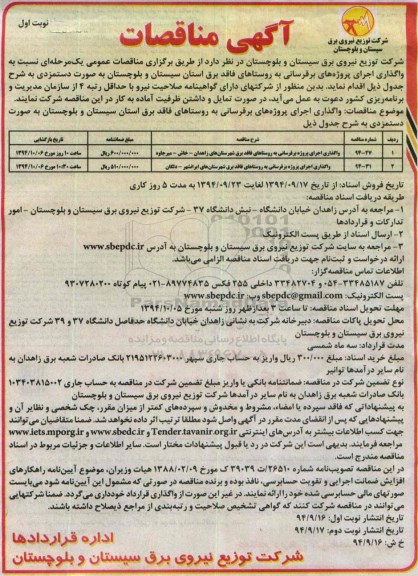 نوبت اول
آگهی مناقصات
شرکت توزیع نیروی برق
سیستان و بلوچستان
شرکت توزیع نیروی برق سیستان و بلوچستان در نظر دارد از طریق برگزاری مناقصات عمومی یک‌مرحله‌ای نسبت به
واگذاری اجرای پروژه‌های برقرسانی به روستاهای فاقد برق استان سیستان و بلوچستان به صورت دستمزدی به شرح
جدول ذیل اقدام نماید. بدین منظور از شرکتهای دارای گواهینامه صلاحیت نیرو با حداقل رتبه ۴ از سازمان مدیریت و
برنامه‌ریزی کشور دعوت به عمل می‌آید، در صورت تمایل و داشتن ظرفیت آماده به کار در این مناقصه شرکت نمایند.
موضوع مناقصات: واگذاری اجرای پروژه‌های برقرسانی به روستاهای فاقد برق استان سیستان و بلوچستان به صورت
دستمزدی به شرح جدول ذیل
ردیف شماره مناقصه شرح مناقصه مبلغ ضمانتنامه تاریخ بازگشایی
۱ ۹۴-۲۷ واگذاری اجرای پروژه برقرسانی به روستاهای فاقد برق شهرستان‌های زاهدان - خاش - میرجاوه ۶۰۰/۰۰۰/۰۰۰ ریال ساعت ۱۰ روز مورخ ۱۳۹۴/۱۰/۰۶
۲ ۹۴-۳۱ واگذاری اجرای پروژه برقرسانی به روستاهای فاقد برق شهرستان‌های ایرانشهر - دلگان ۵۱۰/۰۰۰/۰۰۰ ریال ساعت ۱۰:۳۰ مورخ ۱۳۹۴/۱۰/۰۶
تاریخ فروش اسناد: از تاریخ ۱۳۹۴/۰۹/۱۷ لغایت ۱۳۹۴/۰۹/۲۳ به مدت ۵ روز کاری
طریقه دریافت اسناد مناقصه:
۱- مراجعه به آدرس زاهدان خیابان دانشگاه - نبش دانشگاه ۳۷ - شرکت توزیع نیروی برق سیستان و بلوچستان - امور
تدارکات و قراردادها
۲- ارسال اسناد از طریق پست الکترونیک
۳- مراجعه به سایت شرکت توزیع نیروی برق سیستان و بلوچستان به آدرس www.sbepdc.ir
ارائه درخواست و ثبت‌نام جهت دریافت اسناد مناقصه الزامی می‌باشد.
اطلاعات تماس مناقصه‌گزار:
تلفن ۳۳۴۸۵۱۸۷-۰۵۴ و ۳۳۴۸۲۷۰۴ داخلی ۲۵۵ فکس ۸۹۷۷۴۸۳۵-۰۲۱ پیام کوتاه ۹۳۰۷۲۸۰۲۰۰
پست الکترونیک: sbepdc@gmail.com وب: www.sbepdc.ir
مهلت تحویل اسناد مناقصه: تا ساعت ۳ بعدازظهر روز شنبه مورخ ۱۳۹۴/۱۰/۰۵
محل تحویل پاکات مناقصه: دبیرخانه شرکت به نشانی زاهدان خیابان دانشگاه حدفاصل دانشگاه ۳۷ و ۳۹ شرکت توزیع
نیروی برق سیستان و بلوچستان
مدت قرارداد: سه ماه شمسی
مبلغ خرید اسناد: مبلغ ۳۰۰/۰۰۰ ریال واریز به حساب جاری سپهر ۲۱۹۵۱۲۲۶۰۳۰۰۰ بانک صادرات شعبه برق زاهدان به
نام سایر درآمدها توانیر
نوع تضمین شرکت در مناقصه: ضمانتنامه بانکی یا واریز مبلغ تضمین شرکت در مناقصه به حساب جاری ۱۰۳۴۰۳۸۱۵۰۰۲
بانک صادرات شعبه برق زاهدان به نام سایر درآمدها شرکت توزیع نیروی برق سیستان و بلوچستان
به پیشنهاداتی که فاقد سپرده یا امضاء، مشروط و مخدوش و سپرده‌های کمتر از میزان مقرر، چک شخصی و نظایر آن و
پیشنهادهایی که پس از انقضای مدت مقرر در آگهی واصل شود مطلقا ترتیب اثر داده نخواهد شد. ضمنا متقاضیان می‌توانند
جهت کسب اطلاعات بیشتر به آدرس‌های اینترنتی www.sbedc.ir و Tender.tavanir.org.ir و www.iets.mporg.ir
مراجعه فرمایند. بدیهی است این شرکت در رد یا قبول پیشنهادات مختار است. سایر اطلاعات و جزئیات مربوط در اسناد
مناقصه مندرج است.
در این مناقصه تصویب‌نامه شماره ۲۶۵۱۰/ت ۳۹۰۳۹ ک مورخ ۱۳۸۸/۰۲/۰۹ هیات وزیران، موضوع آیین‌نامه راهکارهای
افزایش ضمانت اجرایی و تقویت حسابرسی، نافذ بوده و برنده مناقصه در صورتی که مشمول این آیین‌نامه شود می‌بایست
صورتهای مالی حسابرسی شده خود را ارائه نمایند. در غیر این صورت از واگذاری قرارداد خودداری می‌گردد. ضمنا شرکتهایی
می‌توانند در مناقصه شرکت کنند که گواهی تشخیص صلاحیت و رتبه‌بندی از مراجع ذیصلاح داشته باشند.
تاریخ انتشار نوبت اول: ۹۴/۹/۱۶
تاریخ انتشار نوبت دوم: ۹۴/۹/۱۷
خ ش: ۹۴/۹/۱۶
اداره قراردادها
شرکت توزیع نیروی برق سیستان و بلوچستان